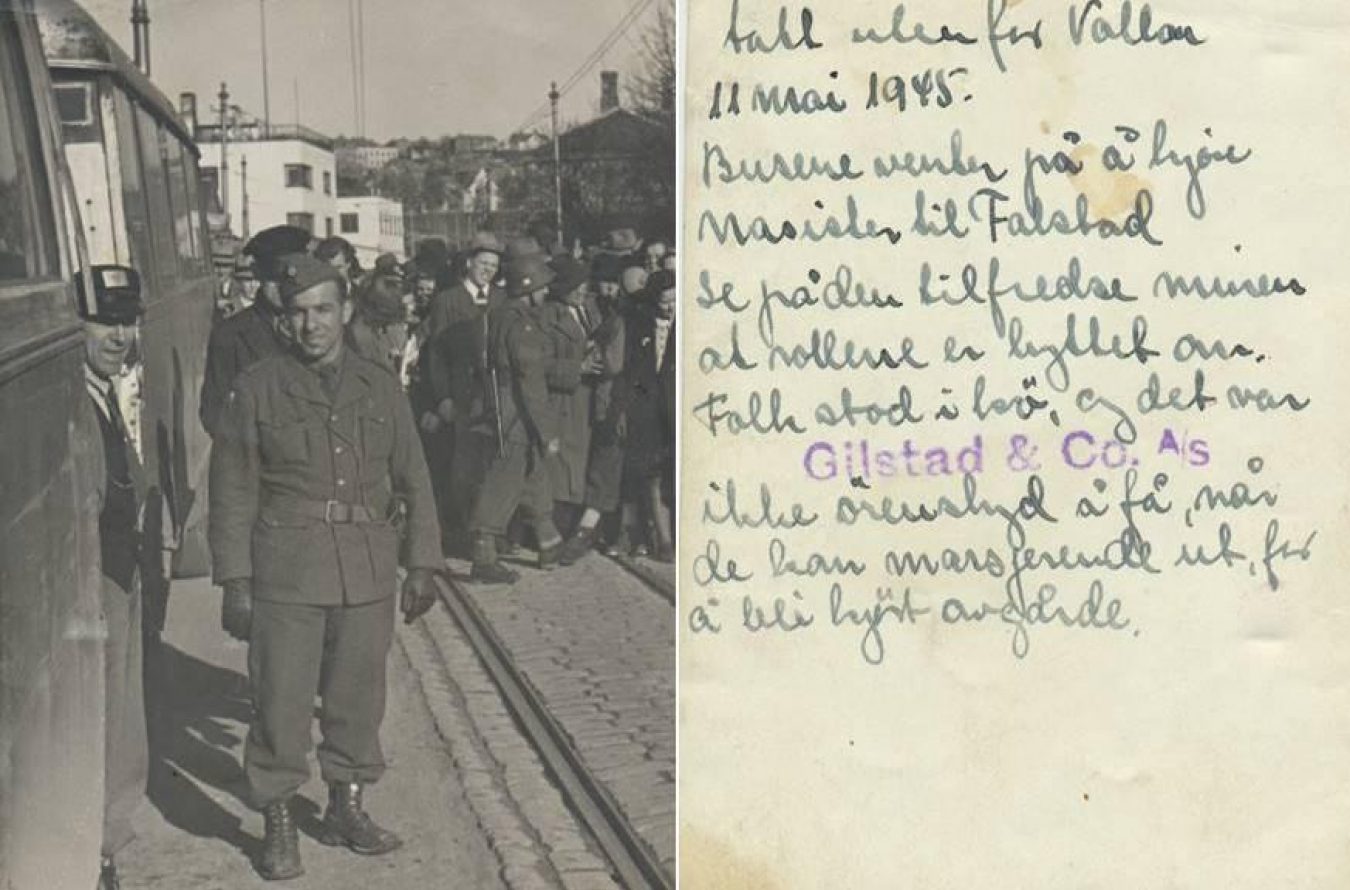 tatt uten for Vollan
11 mai 1945.
Busene venter på å kjøre
nasister til Falstad
se på den tilfredse minen
at rollene er byttet om.
Folk stod i kö, og det var
Gilstad & Co. A/s
ikke örenslyd å få, når
de kom marsjerende ut, for
å bli kjört avgårde.